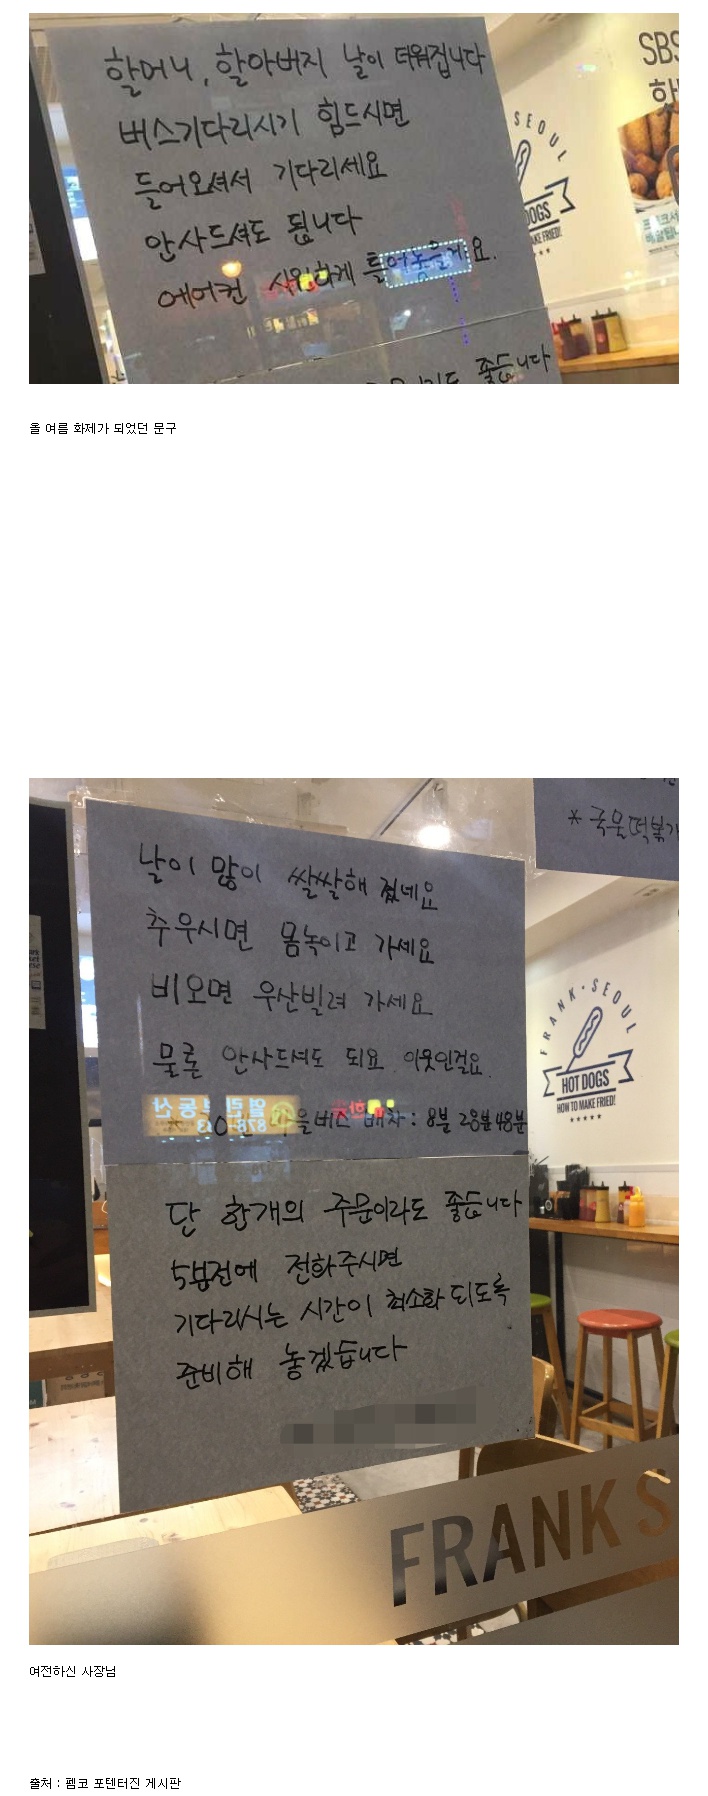 할머니, 할아버지 날이 더워집니다
버스기다리시기 힘드시면
들어오셔서 기다리세요
안사드셔도 됩니다
에어컨 시원하게 틀어놓을게요.
좋습니다
SBS
SEOUL
DOGS
MAKE FRIED!
올 여름 화제가 되었던 문구
* 국물떡볶
날이 많이 쌀쌀해 졌네요
추우시면 몸녹이고 가세요
비오면 우산빌려 가세요
물론 안사드셔도 되요 이웃인걸요.
마을버스 배차 : 8분 28분 48분
단 한개의 주문이라도 좋습니다
5분전에 전화주시면
기다리시는 시간이 최소화 되도록
준비해 놓겠습니다
FRANK · SEOUL
HOT DOGS
HOW TO MAKE FRIED!
FRANK S
여전하신 사장님
출처 : 펨코 포텐터진 게시판